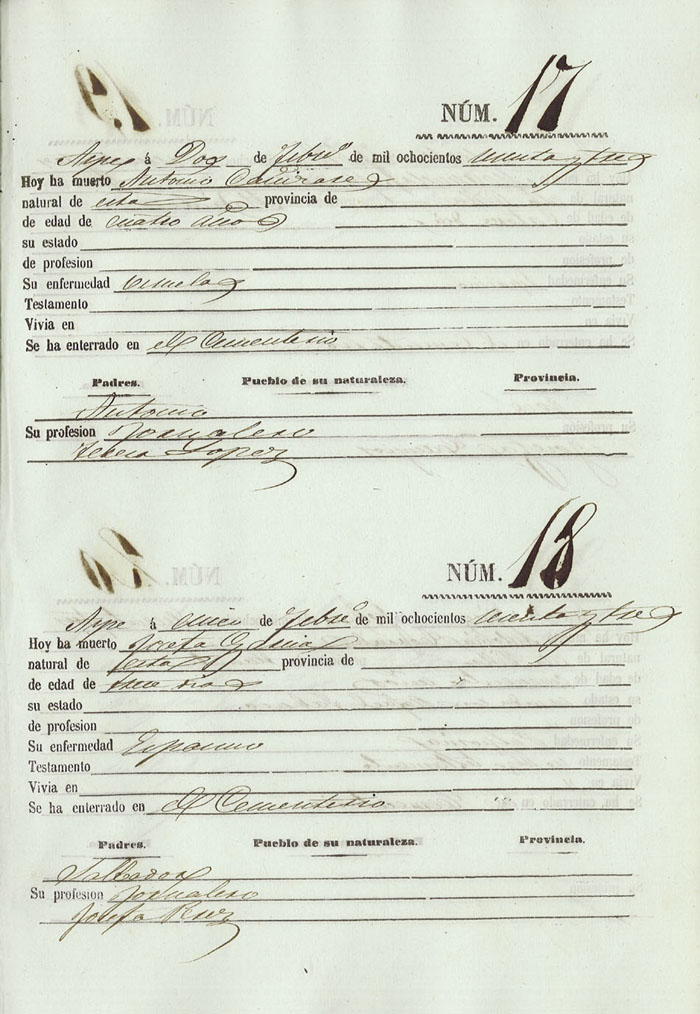 NÚM. 17
Aspe á Dos de Febrº de mil ochocientos y tres
Hoy ha muerto Antonio
natural de esta provincia de
de edad de cuatro años
su estado
de profesion
Su enfermedad viruelas
Testamento
Vivia en
Se ha enterrado en el Cementerio
Padres. Pueblo de su naturaleza. Provincia.
Antonio
Su profesion Jornalero
Teresa Lopez
NÚM. 18
Aspe á cinco de Febrº de mil ochocientos y tres
Hoy ha muerto Josefa
natural de esta provincia de
de edad de trece dias
su estado
de profesion
Su enfermedad Espasmo
Testamento
Vivia en
Se ha enterrado en el Cementerio
Padres. Pueblo de su naturaleza. Provincia.
Salbador
Su profesion Jornalero
Josefa Ruiz